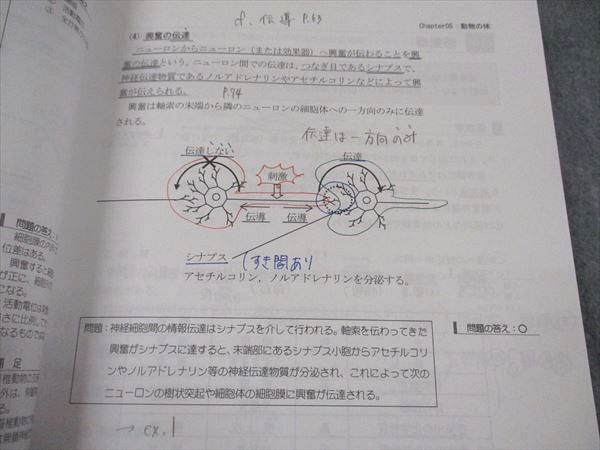 cf. 伝導 P.63
Chapter05 動物の体
(4) 興奮の伝達
ニューロンからニューロン（または効果器）へ興奮が伝わることを興
奮の伝達という。ニューロン間での伝達は，つなぎ目であるシナプスで，
神経伝達物質であるノルアドレナリンやアセチルコリンなどによって興
奮が伝えられる。 P.74
興奮は軸索の末端から隣のニューロンの細胞体への一方向のみに伝達
される。
伝達は一方向のみ
伝達しない
刺激
伝達
伝導 伝導
シナプス すき間あり
アセチルコリン，ノルアドレナリンを分泌する。
問題：神経細胞間の情報伝達はシナプスを介して行われる。軸索を伝わってきた
興奮がシナプスに達すると、末端部にあるシナプス小胞からアセチルコリ
ンやノルアドレナリン等の神経伝達物質が分泌され、これによって次の
ニューロンの樹状突起や細胞体の細胞膜に興奮が伝達される。
問題の答え：○
→ ex. 1
問題の答え：
細胞膜の内
位差はある。
興奮すると
が正に，細胞
になる。
活動電位は
さに比例して
なるもので
補 足